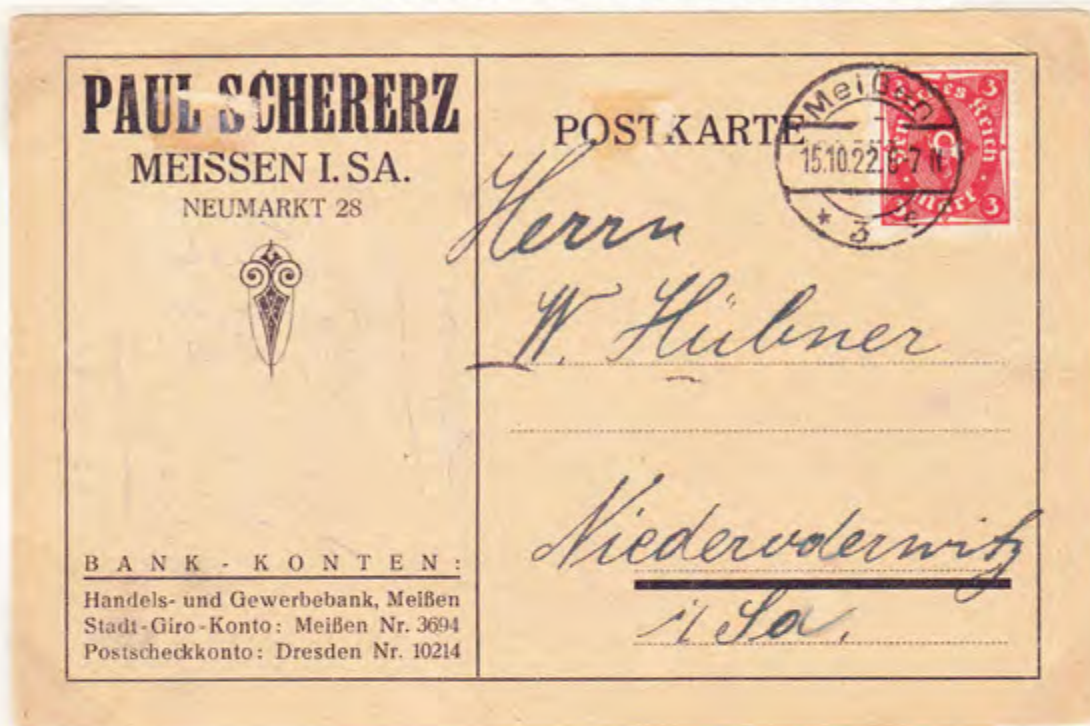 PAUL SCHERERZ
MEISSEN I. SA.
NEUMARKT 28
BANK-KONTEN:
Handels- und Gewerbebank, Meißen
Stadt-Giro-Konto: Meißen Nr. 3694
Postscheckkonto: Dresden Nr. 10214
POSTKARTE
Meißen
15.10.22. 6-7 N
* 3 c
3 3
Deutsches Reich
3 3
Herrn
W. Hübner
Niederoderwitz
i/ Sa.